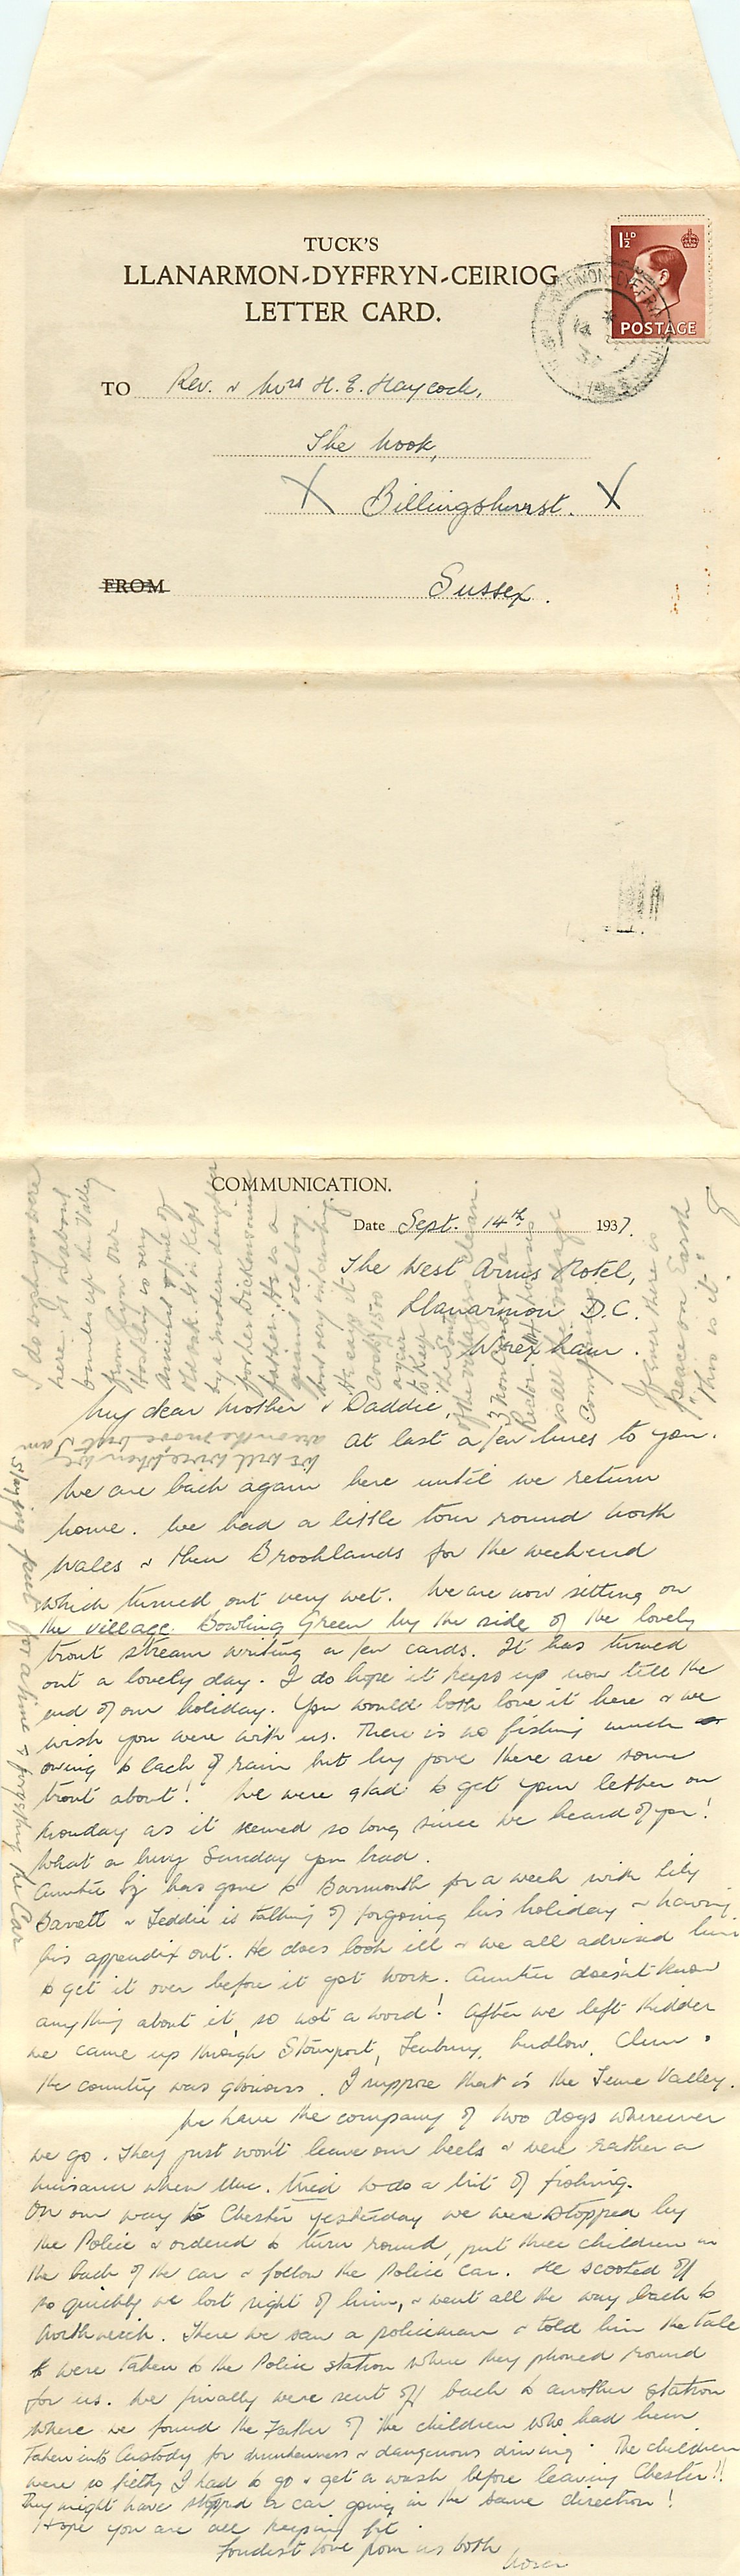 TUCK'S
LLANARMON-DYFFRYN-CEIRIOG
LETTER CARD.
1½D
POSTAGE
TO Rev. & Mrs H. E. Haycock,
The Nook,
X Billingshurst. X
FROM Sussex.
COMMUNICATION.
Date Sept. 14th 1937.
The West Arms Hotel,
Llanarmon D.C.
Wrexham.
My dear Mother & Daddie,
At last a few lines to you.
We are back again here until we return
home. We had a little tour round North
Wales & then Brooklands for the weekend
which turned out very wet. We are now sitting on
the village Bowling Green by the side of the lovely
trout stream writing a few cards. It has turned
out a lovely day. I do hope it keeps up now till the
end of our holiday. You would both love it here & we
wish you were with us. There is no fishing much
owing to lack of rain but by jove there are some
trout about! We were glad to get your letter on
Monday as it seemed so long since we heard of you!
What a busy Sunday you had.
Auntie has gone to Barmouth for a week with Lily
Barett & Teddie is talking of forgoing his holiday & having
his appendix out. He does look ill & we all advised him
to get it over before it got worse. Auntie doesn't know
anything about it, so not a word! After we left Kidder
we came up through Stourport, Tenbury, Ludlow, Clun &
the country was glorious. I suppose that is the Teme Valley.
We have the company of two dogs wherever
we go. They just won't leave our heels & were rather a
nuisance when tried to do a bit of fishing.
On our way to Chester yesterday we were stopped by
the Police & ordered to turn round, put three children in
the back of the car & follow the Police Car. He scooted off
so quickly we lost sight of him, & went all the way back to
Northwich. There we saw a policeman & told him the tale
& were taken to the Police station where they phoned round
for us. We finally were sent off back to another station
where we found the Father of the children who had been
taken into Custody for drunkenness & dangerous driving. The children
were so filthy I had to go & get a wash before leaving Chester!!
They might have stopped a car going in the same direction!
Hope you are all keeping fit.
Fondest love from us both
I do wish you were
here. It is about
miles up the Valley
from Glyn. Our
Host is very
Ancient & full of
old oak. It is kept
by a modern daughter
for her Dickensonian
father. He is a
quaint old boy
but very interesting.
He says it
costs £500
a year
to keep
If ever there is
"peace on Earth
this is it."
We will wire when we
are on the move but I am
staying put for a time & forgetting the Car